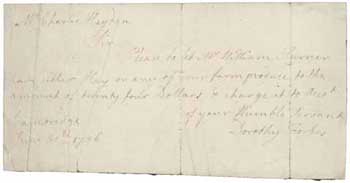 Mr Charles Hayden
Sir
Please to let Mr William Turner
have either Hay or any of your farm produce to the
amount of twenty four Dollars & charge it to Acct
of your Humble Servant
Cambridge Dorothy Forbes
June 20th 1796